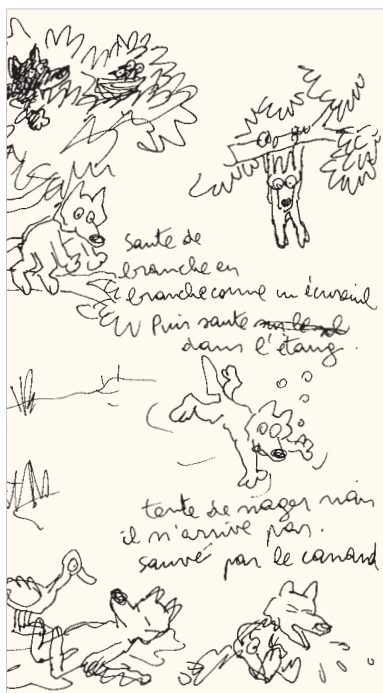 saute de
branche en
branche comme un écureuil
Puis saute sur le sol
dans l'étang.
tente de nager mais
il n'arrive pas.
sauvé par le canard